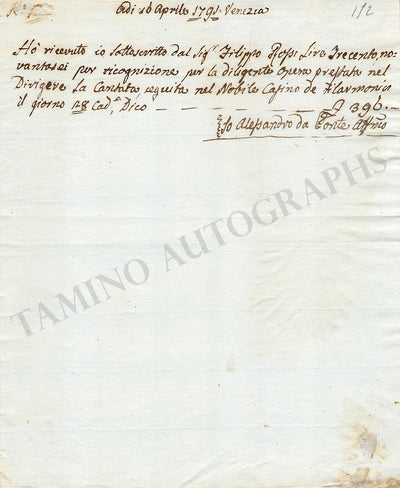 Adì 16 Aprile 1791. Venezia
112
Hò ricevuto io sottoscritto dal Sig.r Filippo Rossi Lire Trecento, no=
vantasei per ricognizione per la diligente Opera prestata nel
Dirigere La Cantata eseguita nel Nobile Casino de Filarmonici
il giorno 28 Cad.te Dico — — — — — £ 396 -
Io Alessandro da Ponte Affmo
TAMINO AUTOGRAPHS